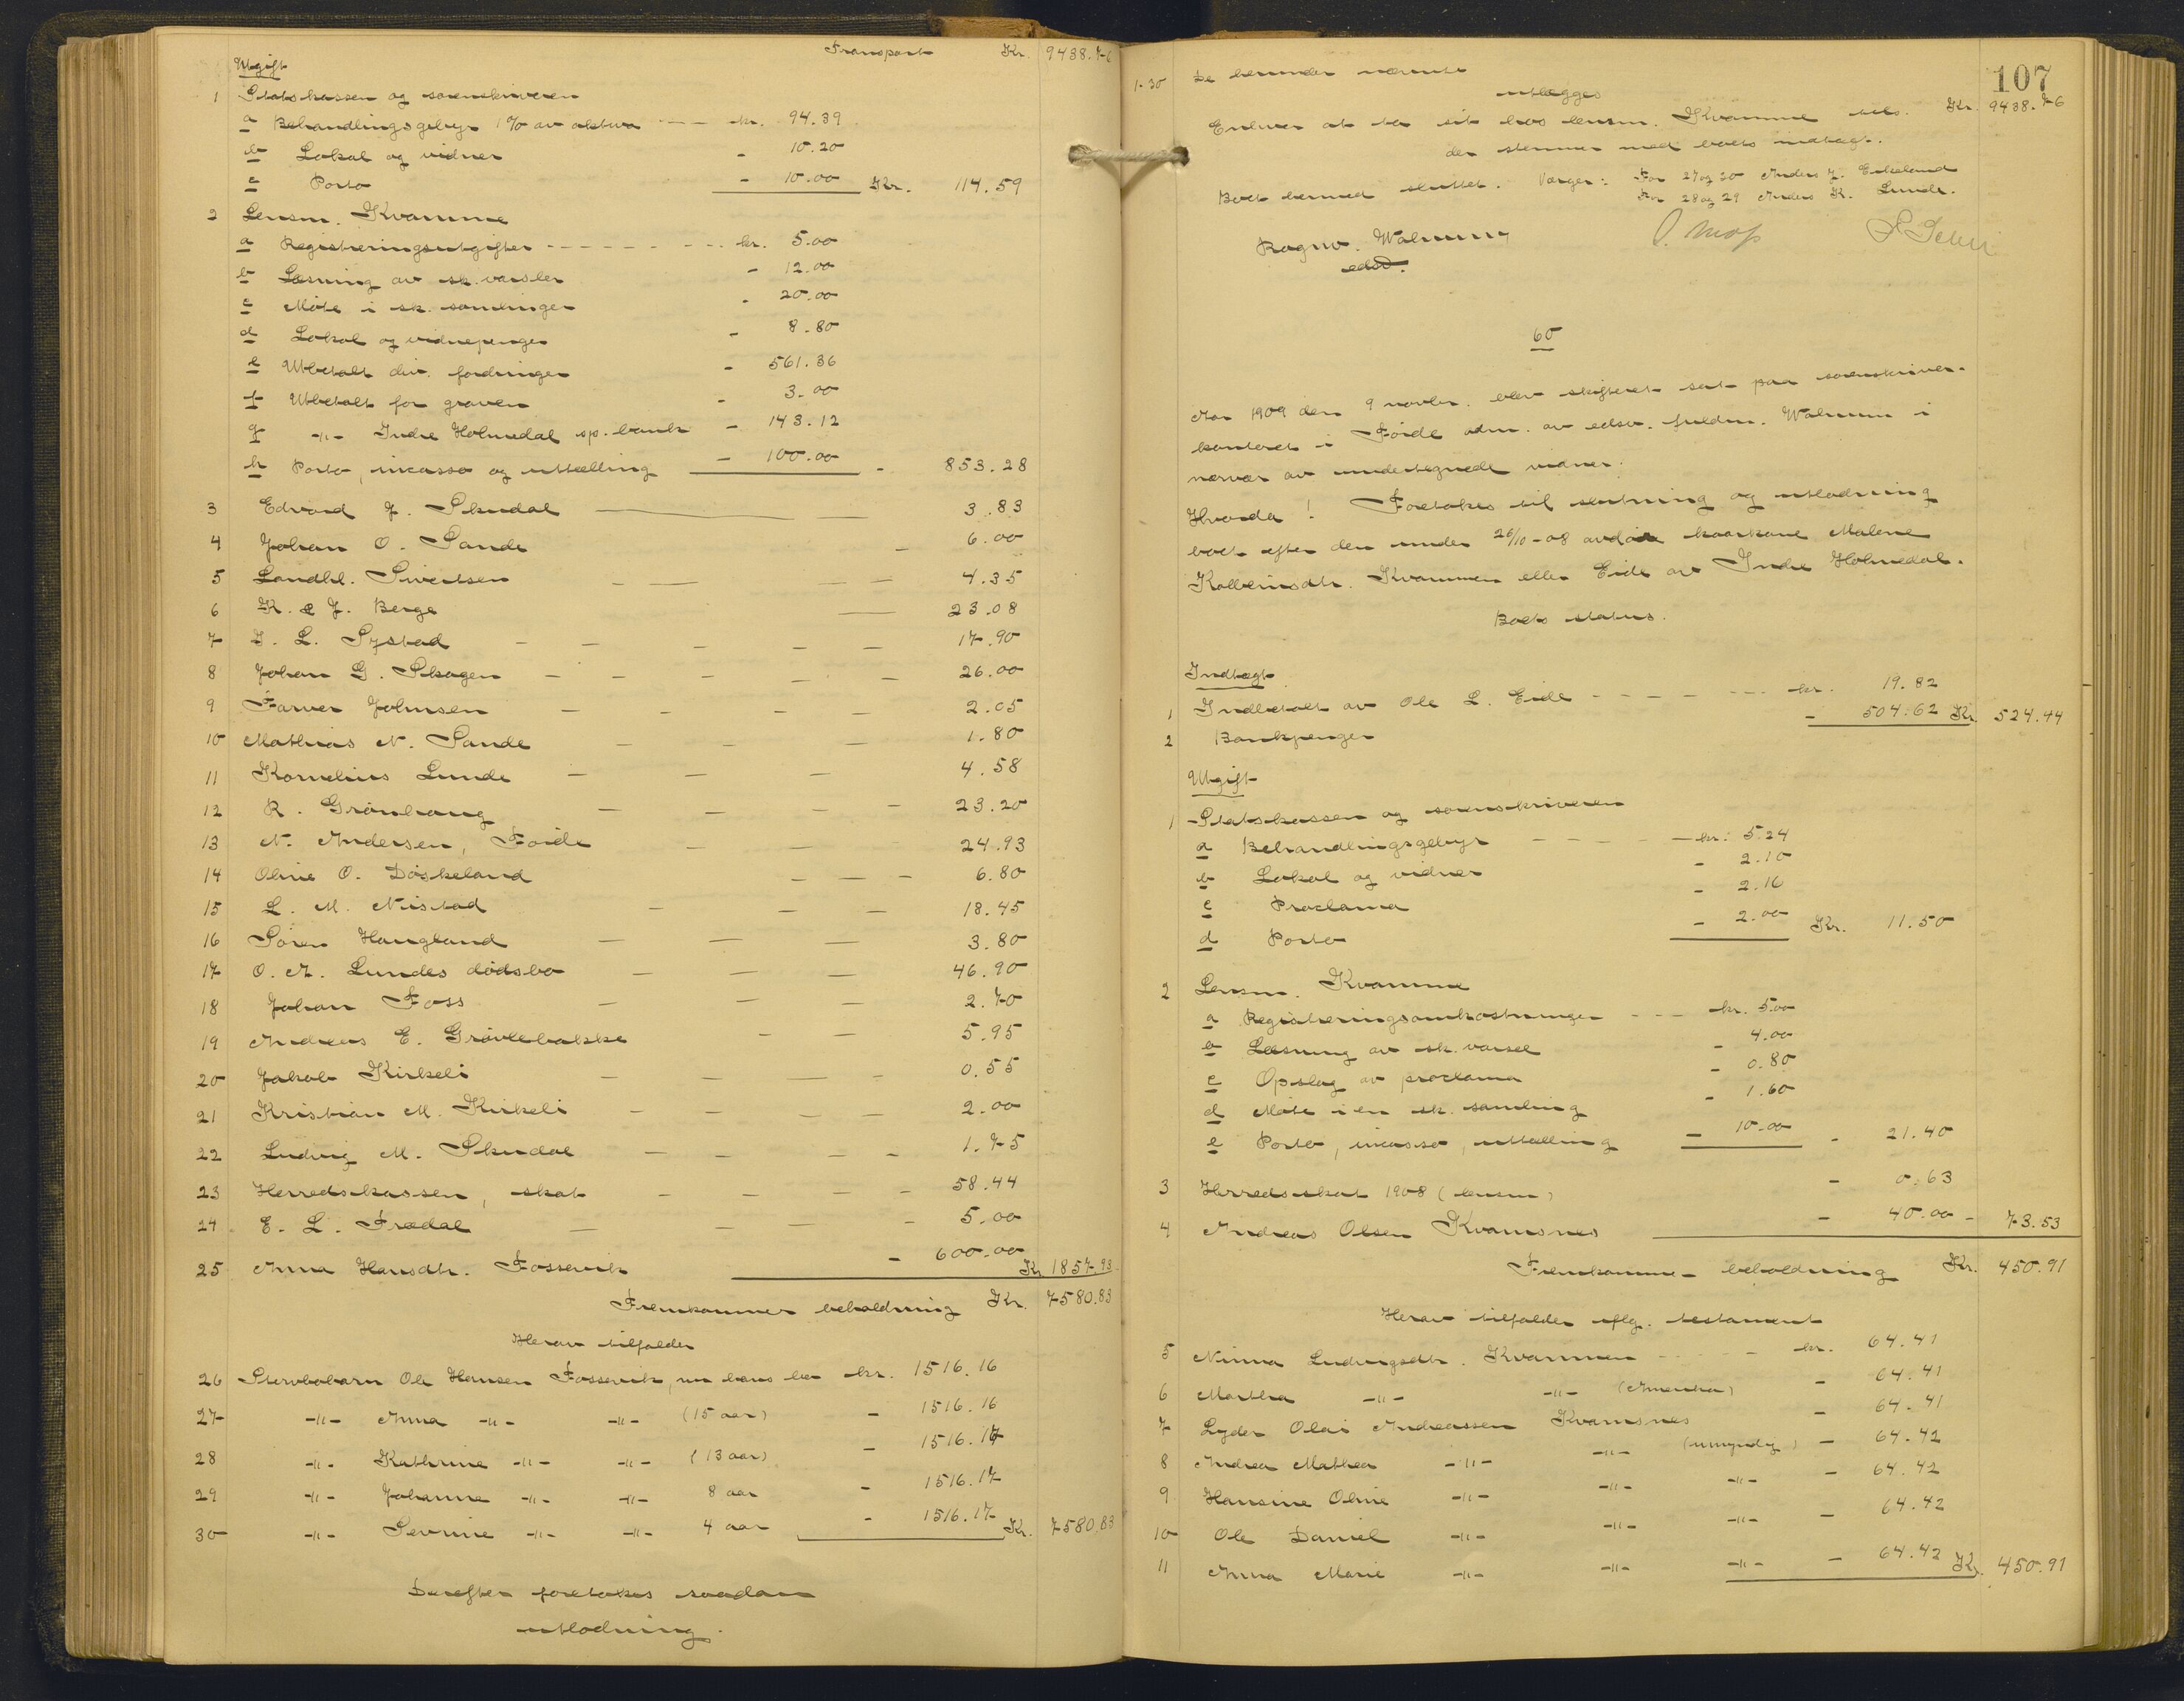 Transport Kr. 9438.76
Utgift
1 Statskassen og sorenskriveren
a Behandlingsgebyr 1% av aktiva - kr. 94.39
b Lokal og vidner - 10.20
c Porto - 10.00 Kr. 114.59
2 Lensm. Kvamme
a Registreringsutgifter - kr. 5.00
b Læsning av sk. varsler - 12.00
c Møte i sk. samlinger - 20.00
d Lokal og vidnepenger - 8.80
e Utbetalt div. fordringer - 561.36
f Utbetalt for graven - 3.00
g -"- Indre Holmedal sp.bank - 143.12
h Porto, incasso og uttælling - 100.00 - 853.28
3 Edvard J. Skudal - 3.83
4 Johan O. Sande - 6.00
5 Landhl. Sivertsen - 4.35
6 K. & J. Berge - 23.08
7 I. L. Systad - 17.90
8 Johan G. Skogen - 26.00
9 Farver Johnsen - 2.05
10 Mathias N. Sande - 1.80
11 Kornelius Lunde - 4.58
12 R. Grønhaug - 23.20
13 N. Andersen, Førde - 24.93
14 Oline O. Døskeland - 6.80
15 L. M. Nistad - 18.45
16 Søren Haugland - 3.80
17 O. A. Lundes dødsbo - 46.90
18 Johan Foss - 2.70
19 Andreas E. Grøvlebakke - 5.95
20 Jakob Kirkeli - 0.55
21 Kristian M. Kirkeli - 2.00
22 Ludvig M. Skudal - 1.75
23 Herredskassen, skat - 58.44
24 E. L. Frædal - 5.00
25 Anna Hansdtr. Fossevik - 600.00 Kr. 1857.93
Fremkommer beholdning Kr. 7580.83
Herav tilfalder
26 Stervbobarn Ole Hansen Fossevik, nu hans bo kr. 1516.16
27 -"- Anna -"- -"- (15 aar) - 1516.16
28 -"- Kathrine -"- -"- (13 aar) - 1516.17
29 -"- Johanne -"- -"- 8 aar - 1516.17
30 -"- Severine -"- -"- 4 aar - 1516.17 Kr. 7580.83
Derefter foretokes saadan
utlodning.
107
1-30 De herunder nævnte
utlægges Kr. 9438.76
Enhver at ta sit hos lensm. Kvamme
der stemmer med boets indtægt.
Boet hermed sluttet. Værger: For 27 og 30 Anders J. Eikeland
For 28 og 29 Anders K. Lunde.
Ragnv. Walnum
edsv.
60
Aar 1909 den 9 novbr. blev skifteret sat paa sorenskriver-
kontoret i Førde adm. av edsv. fuldm. Walnum i
nærvær av undertegnede vidner.
Hvorda! Foretokes til slutning og utlodning
boet efter den under 26/10-08 avdøde kaarkone Malene
Kolbeinsdtr. Kvammen eller Eide av Indre Holmedal.
Boets status.
Indtægt
1 Indbetalt av Ole L. Eide - kr. 19.82
2 Bankpenger - 504.62 Kr. 524.44
Utgift
1 Statskassen og sorenskriveren
a Behandlingsgebyr - kr. 5.24
b Lokal og vidner - 2.10
c Proclama - 2.16
d Porto - 2.00 Kr. 11.50
2 Lensm. Kvamme
a Registreringsomkostninger - kr. 5.00
b Læsning av sk. varsel - 4.00
c Opslag av proclama - 0.80
d Møte i en sk. samling - 1.60
e Porto, incasso, uttælling - 10.00 - 21.40
3 Herredsskat 1908 (lensm) - 0.63
4 Andreas Olsen Kvamsnes - 40.00 - 73.53
Fremkommer beholdning Kr. 450.91
Herav tilfalder iflg. testament
5 Ninna Ludvigsdtr. Kvammen - kr. 64.41
6 Marthea -"- -"- (Amerika) - 64.41
7 Lyder Olai Andreassen Kvamsnes - 64.41
8 Andrea Mathea -"- -"- (umyndig) - 64.42
9 Hansine Oline -"- -"- -"- - 64.42
10 Ole Daniel -"- -"- -"- - 64.42
11 Anna Marie -"- -"- -"- - 64.42 Kr. 450.91